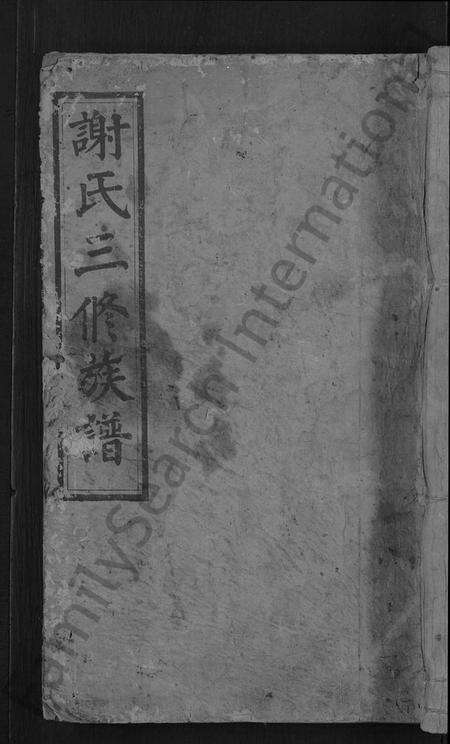 謝氏三修族譜
FamilySearch International